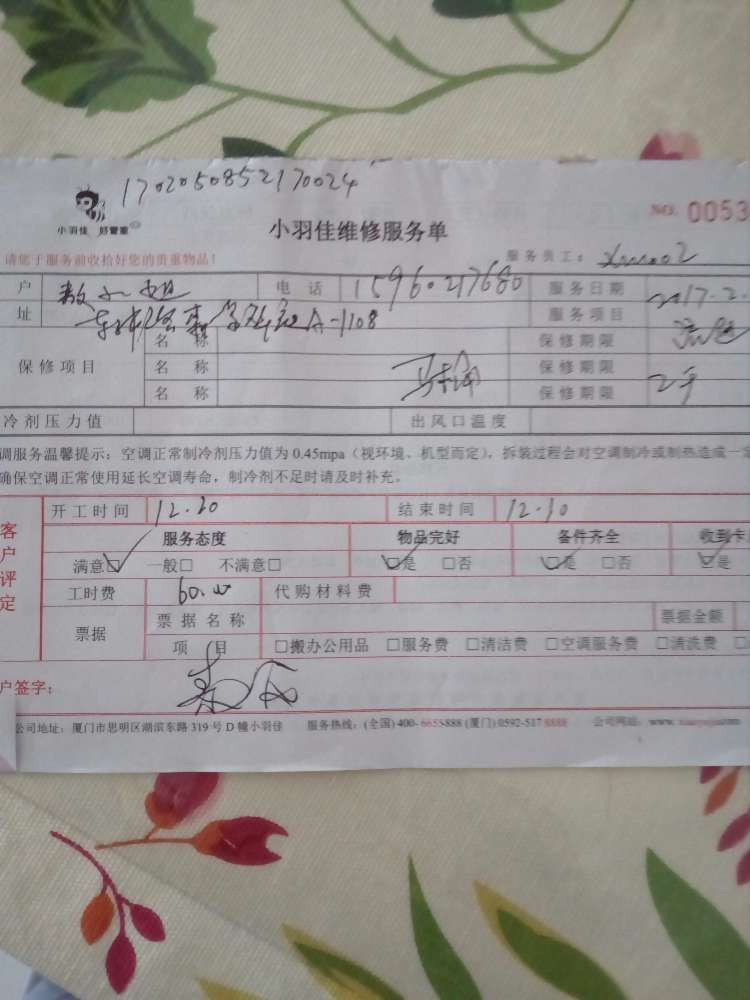 1702050852170024
小羽佳 好管家
小羽佳维修服务单
NO. 0053
请您于服务前收拾好您的贵重物品！
服务员工：
户 电 话 15960217680 服务日期 2017.2.
址 A-1108 服务项目
保修项目
名 称 保修期限
名 称 保修期限
名 称 保修期限 2年
冷剂压力值 出风口温度
调服务温馨提示：空调正常制冷剂压力值为 0.45mpa（视环境、机型而定），拆装过程会对空调制冷或制热造成一定
确保空调正常使用延长空调寿命，制冷剂不足时请及时补充。
客户评定
开工时间 12.20 结束时间 12.10
服务态度 物品完好 备件齐全 收到卡
满意□ 一般□ 不满意□ □是 □否 □是 □否 □是
工时费 60.00 代购材料费
票据 票据名称 票据金额
项 目 □搬办公用品 □服务费 □清洁费 □空调服务费 □清洗费
户签字：
公司地址：厦门市思明区湖滨东路 319 号 D 幢小羽佳 服务热线：(全国) 400-6655888 (厦门) 0592-517 8888 公司网站：www.